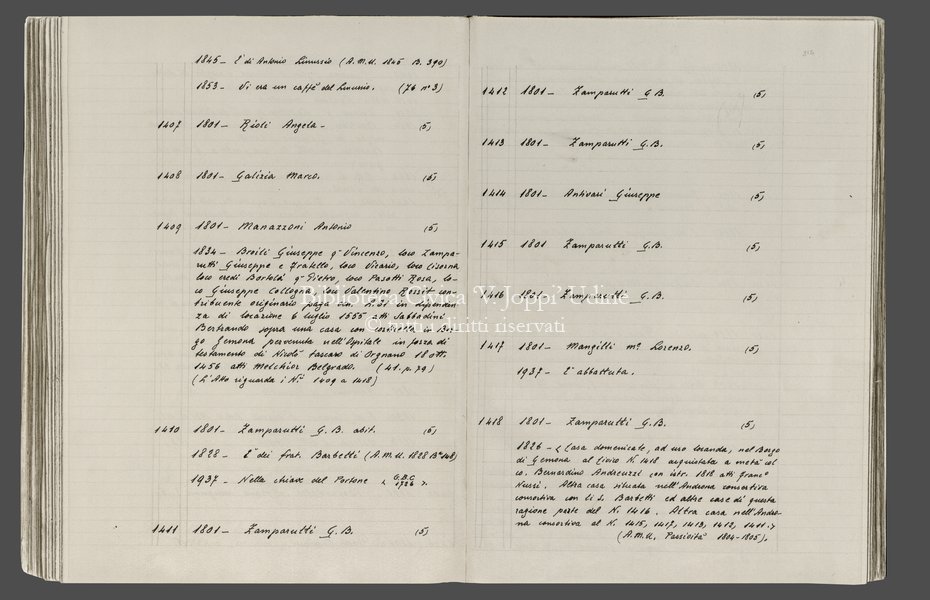 1845 – È di Antonio Linussio (A.M.U. 1845 B. 390)
1853 – Vi era un caffè del Linussio. (76 n° 3)
1407 1801 – Rioli Angela – (5)
1408 1801 – Galizia Marco. (5)
1409 1801 – Manazzoni Antonio (5)
1834 – Broili Giuseppe q.m Vincenzo, loco Zampa-
rutti Giuseppe e Fratello, loco Vicario, loco Cisorna
loco eredi Bortolo q.m Pietro, loco Pasotti Rosa, lo-
co Giuseppe Collogna, loco Valentino con-
tribuente originario paga in dipenden-
za di locazione 6 luglio 1555 atti Sabbadini
Bertrando sopra una casa con corticella in Bor-
go Gemona pervenuta nell'Ospitale in forza di
testamento di Nicolò fascaro di Orgnano 18 ott.
1456 atti Melchior Belgrado. (41. p. 79)
(L'Atto riguarda i N.i 1409 a 1418)
1410 1801 – Zamparutti G. B. abit. (5)
1828 – È dei frat. Barbetti (A.M.U. 1828 B. 148)
1937 – Nella chiave del Portone < G.B.C. 1726 >.
1411 1801 – Zamparutti G. B. (5)
1412 1801 – Zamparutti G. B. (5)
1413 1801 – Zamparutti G. B. (5)
1414 1801 – Antivari Giuseppe (5)
1415 1801 Zamparutti G. B. (5)
1416 1801 – Zamparutti G. B. (5)
1417 1801 – Mangilli m.e Lorenzo. (5)
1937 – È abbattuta.
1418 1801 – Zamparutti G. B. (5)
1826 – < Casa domenicale, ad uso locanda, nel Borgo
di Gemona al Civico N. 1418 acquistata a metà col
co. Bernardino Andreuzzi con istr. 1818 atti Franc.o
Nussi. Altra casa situata nell'Androna consortiva
consortiva con li S. Barbetti ed altre case di questa
ragione parte del N. 1416. Altra casa nell'Andro-
na consortiva al N. 1415, 1417, 1413, 1412, 1411. >
(A.M.U. Passività 1804-1805).
Biblioteca Civica 'V. Joppi' Udine
© tutti i diritti riservati